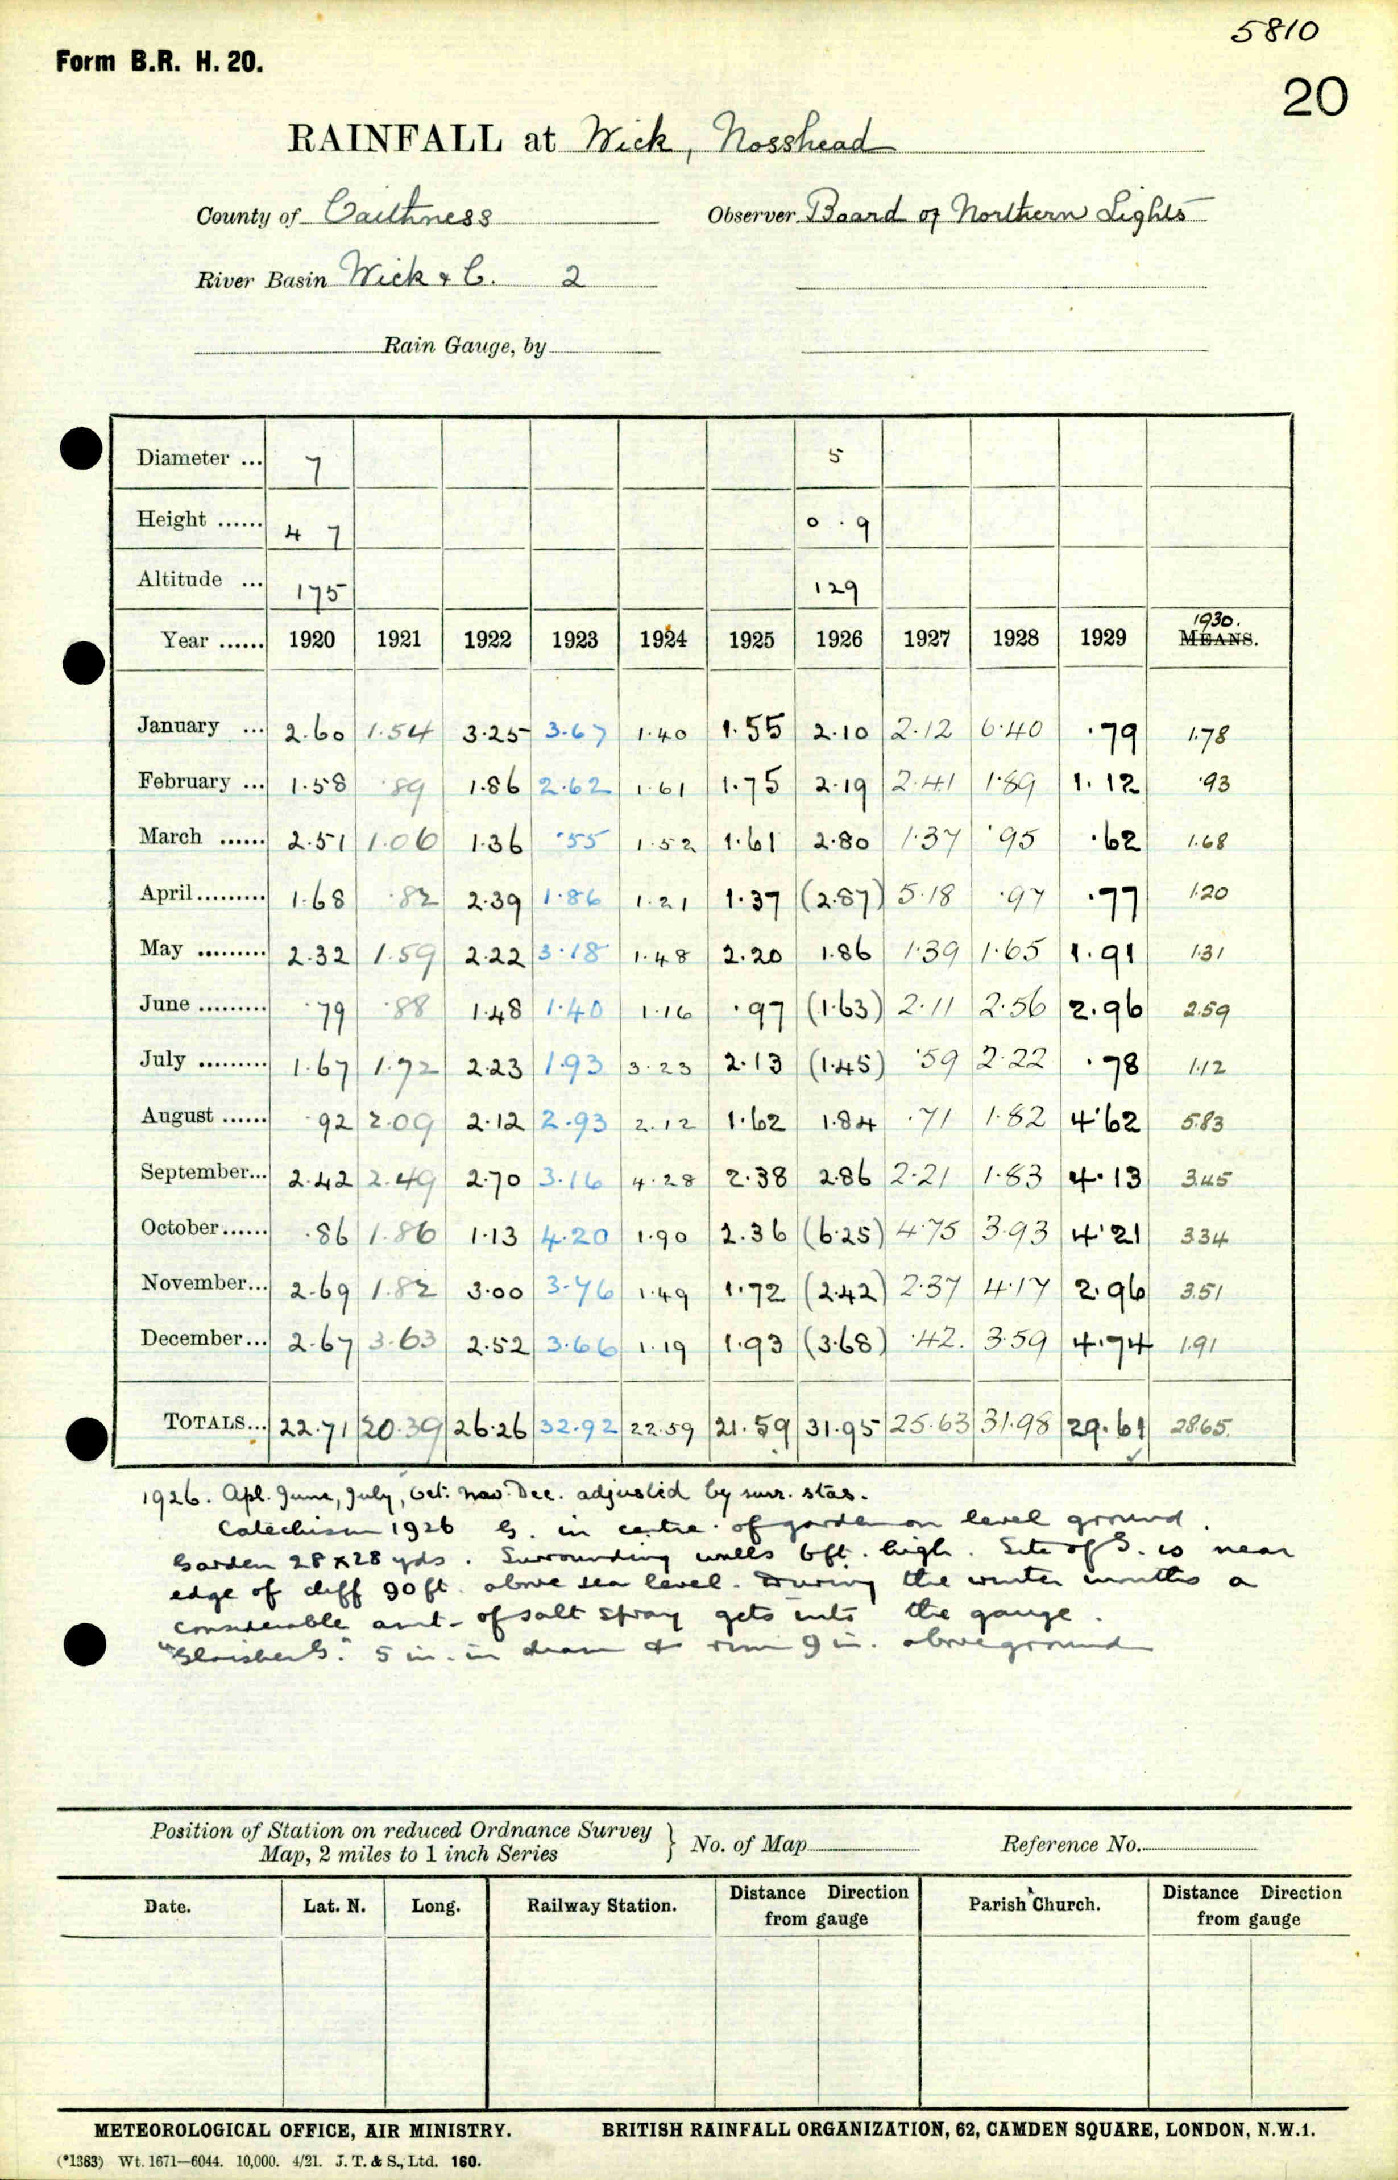 5810
Form B.R. H. 20.
20
RAINFALL at Wick, Nosshead
County of Caithness Observer Board of Northern Lights
River Basin Wick & C. 2
Rain Gauge, by
Diameter ... 7 5
Height ...... 4 7 0 . 9
Altitude ... 175 129
1930.
Year ...... 1920 1921 1922 1923 1924 1925 1926 1927 1928 1929 MEANS.
January ... 2.60 1.54 3.25 3.67 1.40 1.55 2.10 2.12 6.40 .79 1.78
February ... 1.58 .89 1.86 2.62 1.61 1.75 2.19 2.41 1.89 1.12 .93
March ...... 2.51 1.06 1.36 .55 1.52 1.61 2.80 1.37 .95 .62 1.68
April ......... 1.68 .82 2.39 1.86 1.21 1.37 (2.87) 5.18 .97 .77 1.20
May ......... 2.32 1.59 2.22 3.18 1.48 2.20 1.86 1.39 1.65 1.91 1.31
June ......... .79 .88 1.48 1.40 1.16 .97 (1.63) 2.11 2.56 2.96 2.59
July ......... 1.67 1.72 2.23 1.93 3.23 2.13 (1.45) .59 2.22 .78 1.12
August ...... .92 2.09 2.12 2.93 2.12 1.62 1.84 .71 1.82 4.62 5.83
September... 2.42 2.49 2.70 3.16 4.28 2.38 2.86 2.21 1.83 4.13 3.45
October...... .86 1.86 1.13 4.20 1.90 2.36 (6.25) 4.75 3.93 4.21 3.34
November... 2.69 1.82 3.00 3.76 1.49 1.72 (2.42) 2.37 4.17 2.96 3.51
December... 2.67 3.63 2.52 3.66 1.19 1.93 (3.68) .42. 3.59 4.74 1.91
TOTALS... 22.71 20.39 26.26 32.92 22.59 21.59 31.95 25.63 31.98 29.61 28.65.
1926. Apl. June, July, Oct. Nov. Dec. adjusted by surr. stas.
Catechism 1926 G. in centre of garden on level ground.
Garden 28 x 28 yds. Surrounding walls 6ft. high. Site of G. is near
edge of cliff 90ft. above sea level. During the winter months a
considerable amt. of salt spray gets into the gauge.
"Glaisher G." 5 in. in diam & rim 9 in. above ground
Position of Station on reduced Ordnance Survey
Map, 2 miles to 1 inch Series } No. of Map Reference No.
Date. Lat. N. Long. Railway Station. Distance Direction from gauge Parish Church. Distance Direction from gauge
METEOROLOGICAL OFFICE, AIR MINISTRY. BRITISH RAINFALL ORGANIZATION, 62, CAMDEN SQUARE, LONDON, N.W.1.
(*1383) Wt. 1671—6044. 10,000. 4/21. J. T. & S., Ltd. 160.